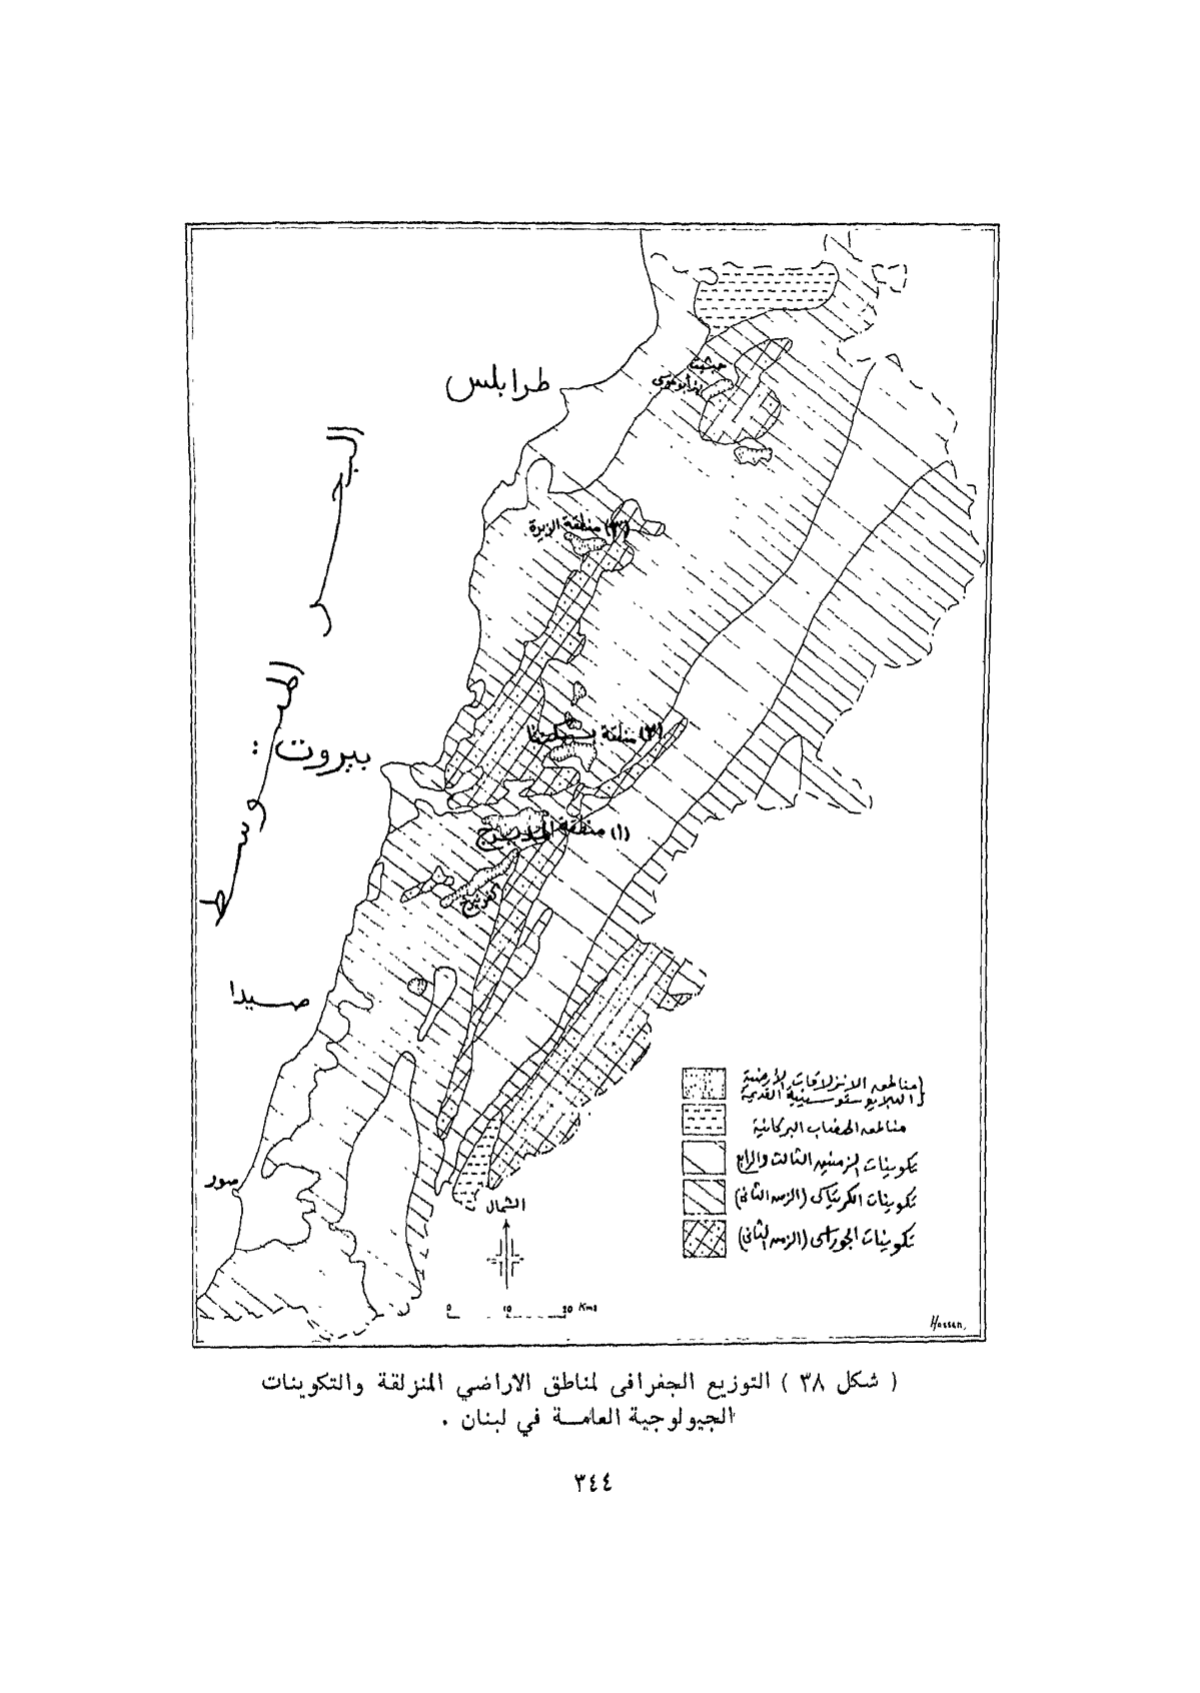 طرابلس
البحر
المتوسط
حبشيت
(٣) منطقة الزيرة
(٢) منطقة بسكنتا
بيروت :
(١) منطقة المديرج
كفرنبرخ
صيدا
صور
مناطق الانزلاقات الأرضية
البلايوستوسينية القديمة
مناطق الهضاب البركانية
تكوينات الزمنين الثالث والرابع
تكوينات الكريتاسى (الزمن الثانى)
تكوينات الجوراسى (الزمن الثانى)
الشمال
0 10 20 Kms
Hassan.
( شكل ٣٨ ) التوزيع الجفرافى لمناطق الاراضي المنزلقة والتكوينات
الجيولوجية العامـة في لبنان .
٣٤٤